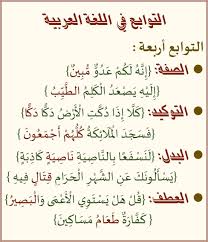 التوابع في اللغة العربية
التوابع أربعة :
الصفة: {إِنَّهُ لَكُمْ عَدُوٌّ مُّبِينٌ}
{إِلَيْهِ يَصْعَدُ الْكَلِمُ الطَّيِّبُ}
التوكيد: {كَلَّا إِذَا دُكَّتِ الْأَرْضُ دَكًّا دَكًّا}
{فَسَجَدَ الْمَلَائِكَةُ كُلُّهُمْ أَجْمَعُونَ}
البدل: {لَنَسْفَعًا بِالنَّاصِيَةِ نَاصِيَةٍ كَاذِبَةٍ}
{يَسْأَلُونَكَ عَنِ الشَّهْرِ الْحَرَامِ قِتَالٍ فِيهِ}
العطف: {قُلْ هَلْ يَسْتَوِي الْأَعْمَى وَالْبَصِيرُ}
{كَفَّارَةٌ طَعَامُ مَسَاكِينَ}